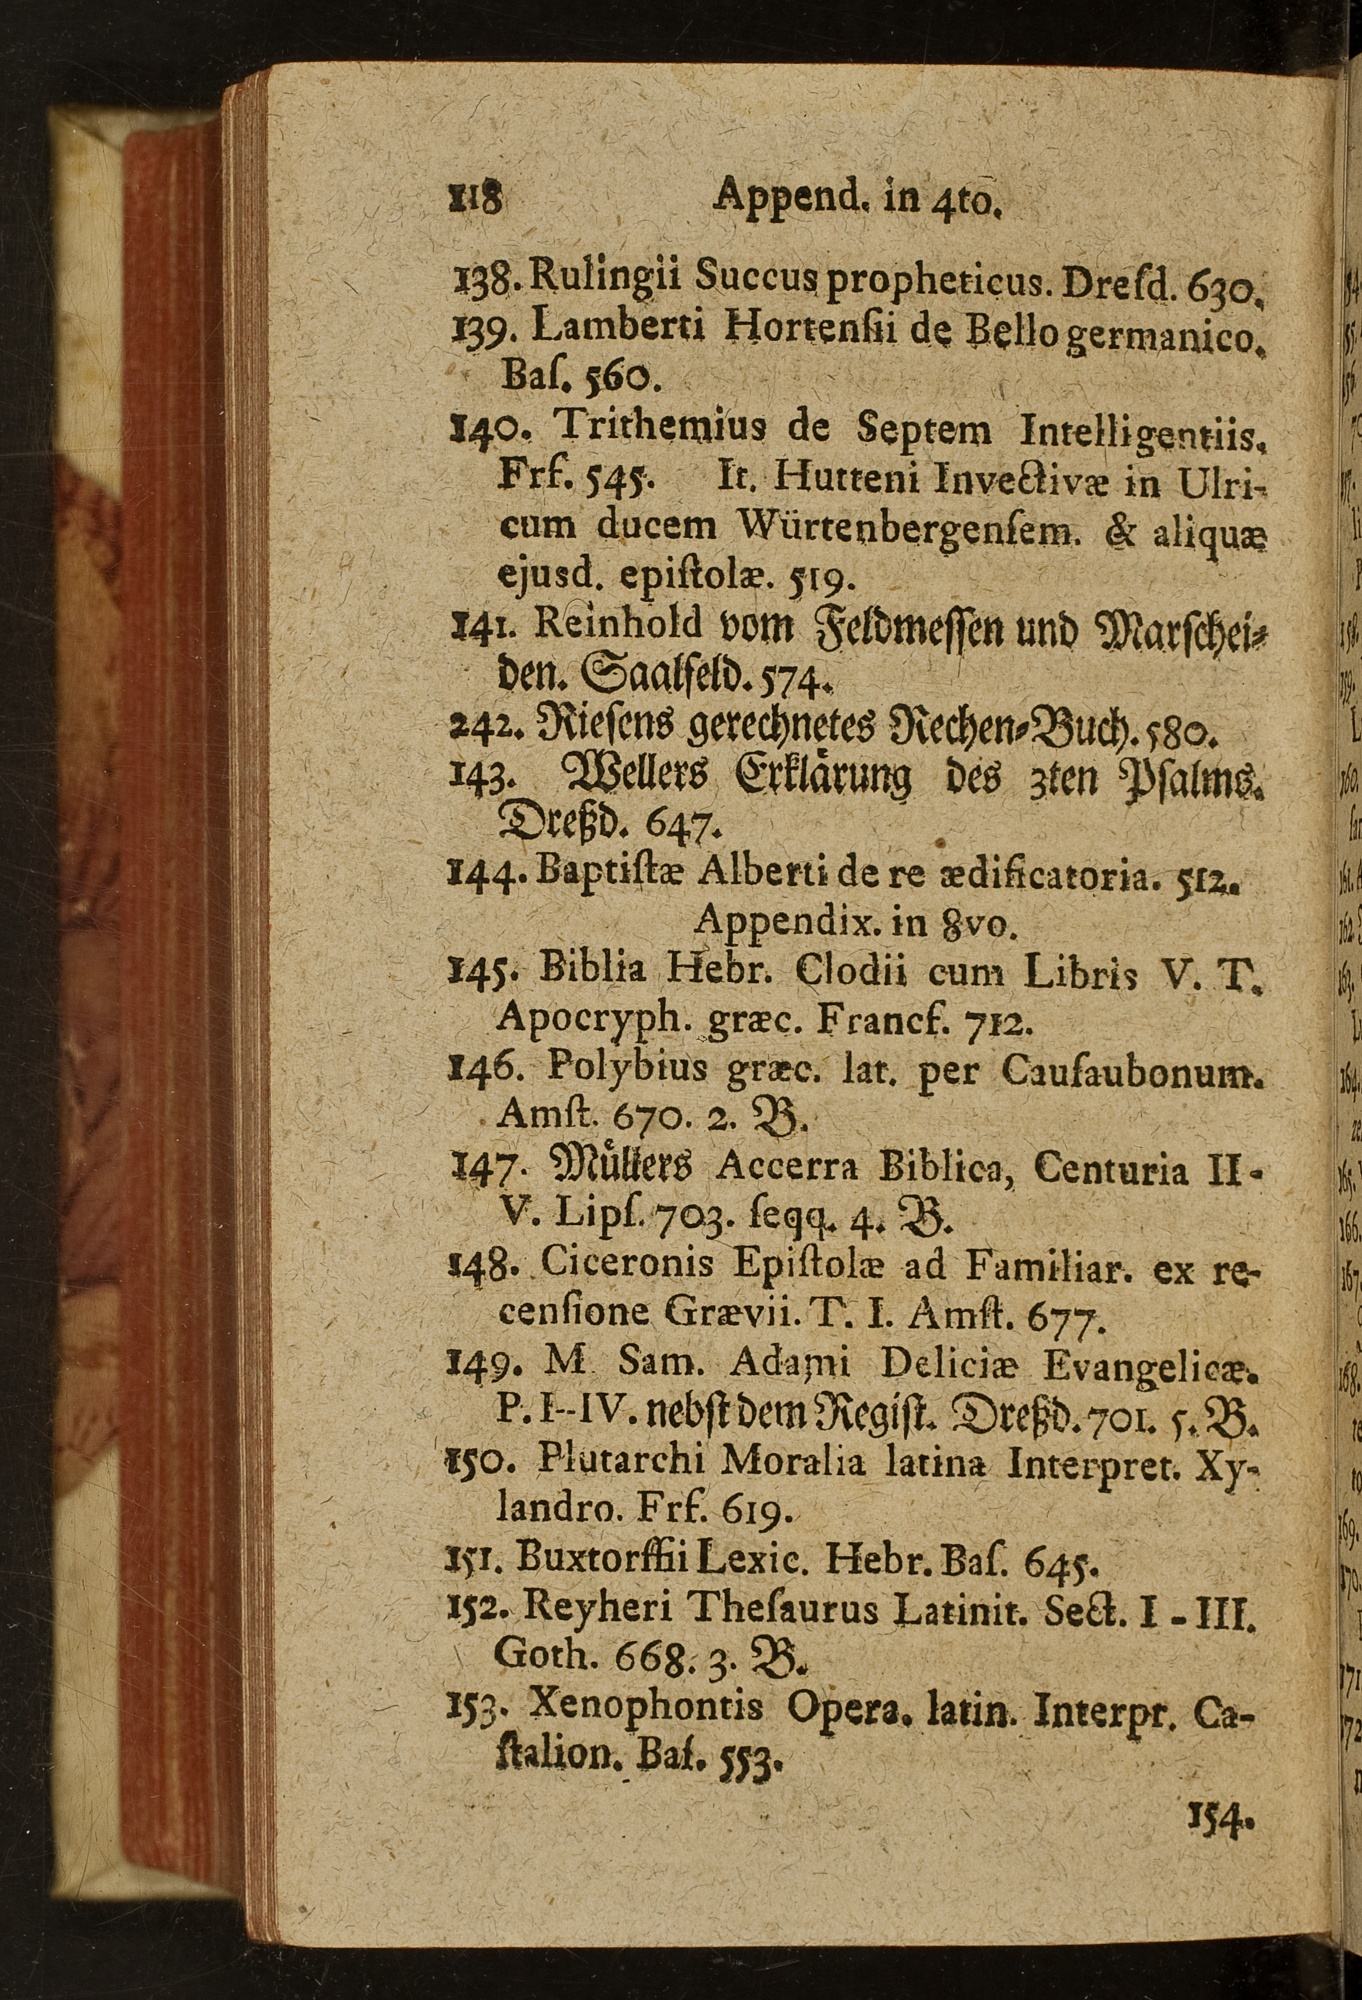 118 Append. in 4to.
138. Rulingii Succus propheticus. Dreſd. 630.
139. Lamberti Hortenſii de Bello germanico.
Baſ. 560.
140. Trithemius de Septem Intelligentiis.
Frf. 545. It. Hutteni Invectivæ in Ulri-
cum ducem Würtenbergenſem. & aliquæ
ejusd. epiſtolæ. 519.
141. Reinhold vom Feldmeſſen und Marſchei-
den. Saalfeld. 574.
242. Rieſens gerechnetes Rechen-Buch. 580.
143. Wellers Erklärung des 3ten Pſalms.
Dreßd. 647.
144. Baptiſtæ Alberti de re ædificatoria. 512.
Appendix. in 8vo.
145. Biblia Hebr. Clodii cum Libris V. T.
Apocryph. græc. Francf. 712.
146. Polybius græc. lat. per Cauſaubonum.
Amſt. 670. 2. B.
147. Müllers Accerra Biblica, Centuria II-
V. Lipſ. 703. ſeqq. 4. B.
148. Ciceronis Epiſtolæ ad Familiar. ex re-
cenſione Grævii. T. I. Amſt. 677.
149. M Sam. Adami Deliciæ Evangelicæ.
P. I--IV. nebſt dem Regiſt. Dreßd. 701. 5. B.
150. Plutarchi Moralia latina Interpret. Xy-
landro. Frf. 619.
151. Buxtorffii Lexic. Hebr. Baſ. 645.
152. Reyheri Theſaurus Latinit. Sect. I - III.
Goth. 668. 3. B.
153. Xenophontis Opera. latin. Interpr. Ca-
ſtalion. Baſ. 553.
154.